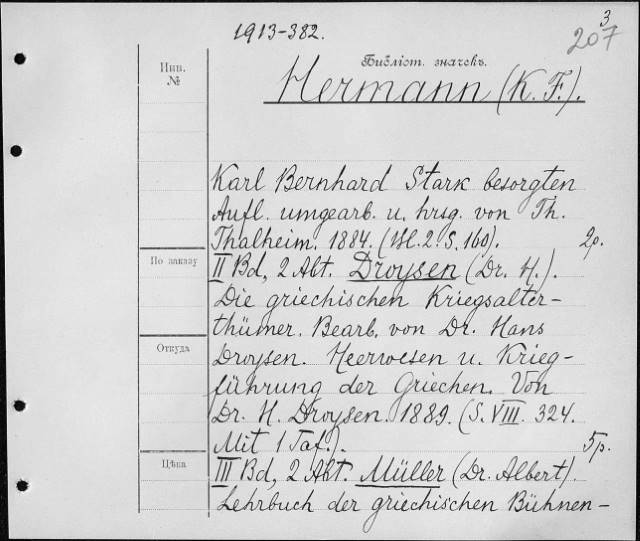 1913-382.
3
207
Инв.
№
Библіот. значекъ.
Hermann (K. F.).
Karl Bernhard Stark besorgten
Aufl. umgearb. u. hrsg. von Th.
Thalheim. 1884. (Bl. 2. S. 160).
2р.
По заказу
II Bd, 2 Abt. Droysen (Dr. H.).
Die griechischen Kriegsalter-
thümer. Bearb. von Dr. Hans
Откуда
Droysen. Heerwesen u. Krieg-
führung der Griechen. Von
Dr. H. Droysen. 1889. (S. VIII. 324.
Mit 1 Taf.).
5р.
Цѣна
III Bd, 2 Abt. Müller (Dr. Albert).
Lehrbuch der griechischen Bühnen-